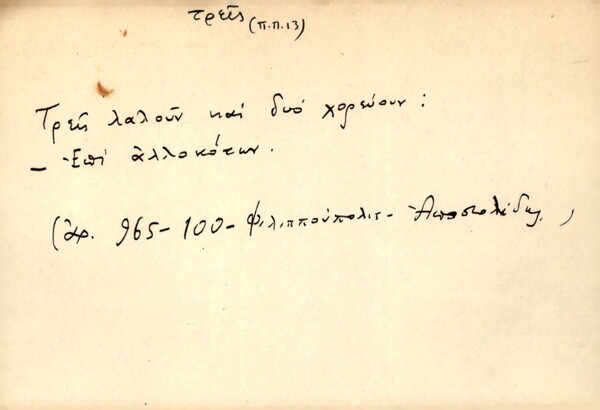 τρεῖς (Π.Π.13)
Τρεῖς λαλοῦν καί δυό χορεύουν :
– Ἐπί ἀλλοκότων.
(ἀρ. 965-100- Φιλιππούπολις- Ἀποστολίδης)